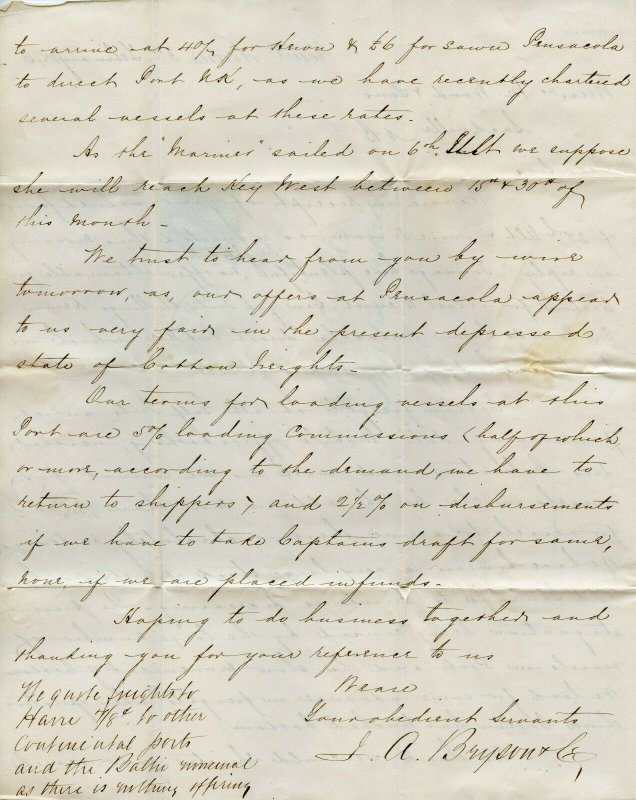 to arrive at 40/ for Hewn & £6 for sawn Pensacola
to direct Port UK, as we have recently chartered
several vessels at these rates.
As the "Mariner" sailed on 6th Ult we suppose
she will reach Key West between 15th & 30th of
this month -
We trust to hear from you by wire
tomorrow as, our offers at Pensacola appear
to us very fair in the present depressed
state of Cotton freights -
Our terms for loading vessels at this
Port are 5% loading Commissions (half of which
or more, according to the demand, we have to
return to shippers) and 2½% on disbursements
if we have to take Captains draft for same,
none, if we are placed in funds. -
Hoping to do business together and
thanking you for your reference to us
We are
Your obedient Servants
J. A. Bryson & Co,
We quote freights to
Havre to other
Continental ports
and the Baltic nominal
as there is nothing offering